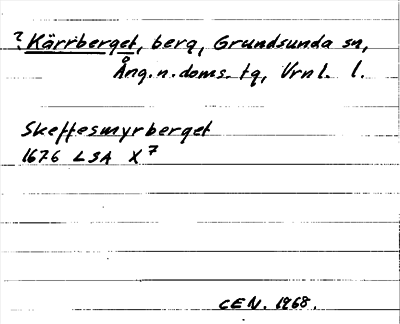 ? Kärrberget, berg, Grundsunda sn,
Ång. n. doms. tg, Vrnl. l.
Skeffesmyrberget
1676 LSA X 7
CEN. 1968.